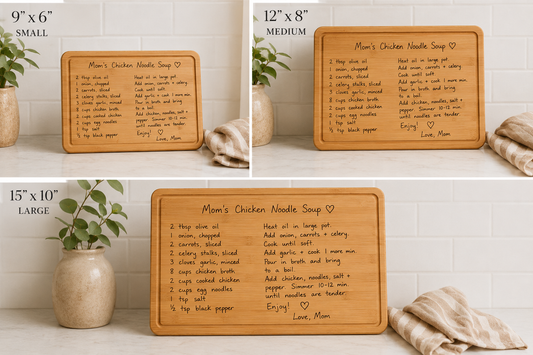 9” x 6”
SMALL
Mom's Chicken Noodle Soup ♡
2 tbsp olive oil
1 onion, chopped
2 carrots, sliced
2 celery stalks, sliced
3 cloves garlic, minced
8 cups chicken broth
2 cups cooked chicken
2 cups egg noodles
1 tsp salt
½ tsp black pepper
Heat oil in large pot.
Add onion, carrots + celery.
Cook until soft
Add garlic + cook 1 more min.
Pour in broth and bring
to a boil.
Add chicken, noodles, salt +
pepper. Simmer 10-12 min.
until noodles are tender.
Enjoy! ♡
Love, Mom
12” x 8”
MEDIUM
Mom's Chicken Noodle Soup ♡
2 tbsp olive oil
1 onion, chopped
2 carrots, sliced
2 celery stalks, sliced
3 cloves garlic, minced
8 cups chicken broth
2 cups cooked chicken
2 cups egg noodles
1 tsp salt
½ tsp black pepper
Heat oil in large pot.
Add onion, carrots + celery.
Cook until soft
Add garlic + cook 1 more min.
Pour in broth and bring
to a boil.
Add chicken, noodles, salt +
pepper. Simmer 10-12 min.
until noodles are tender.
Enjoy! ♡
Love, Mom
15” x 10”
LARGE
Mom's Chicken Noodle Soup ♡
2 tbsp olive oil
1 onion, chopped
2 carrots, sliced
2 celery stalks, sliced
3 cloves garlic, minced
8 cups chicken broth
2 cups cooked chicken
2 cups egg noodles
1 tsp salt
½ tsp black pepper
Heat oil in large pot.
Add onion, carrots + celery.
Cook until soft
Add garlic + cook 1 more min.
Pour in broth and bring
to a boil.
Add chicken, noodles, salt +
pepper Simmer 10-12 min.
until noodles are tender
Enjoy! ♡
Love, Mom